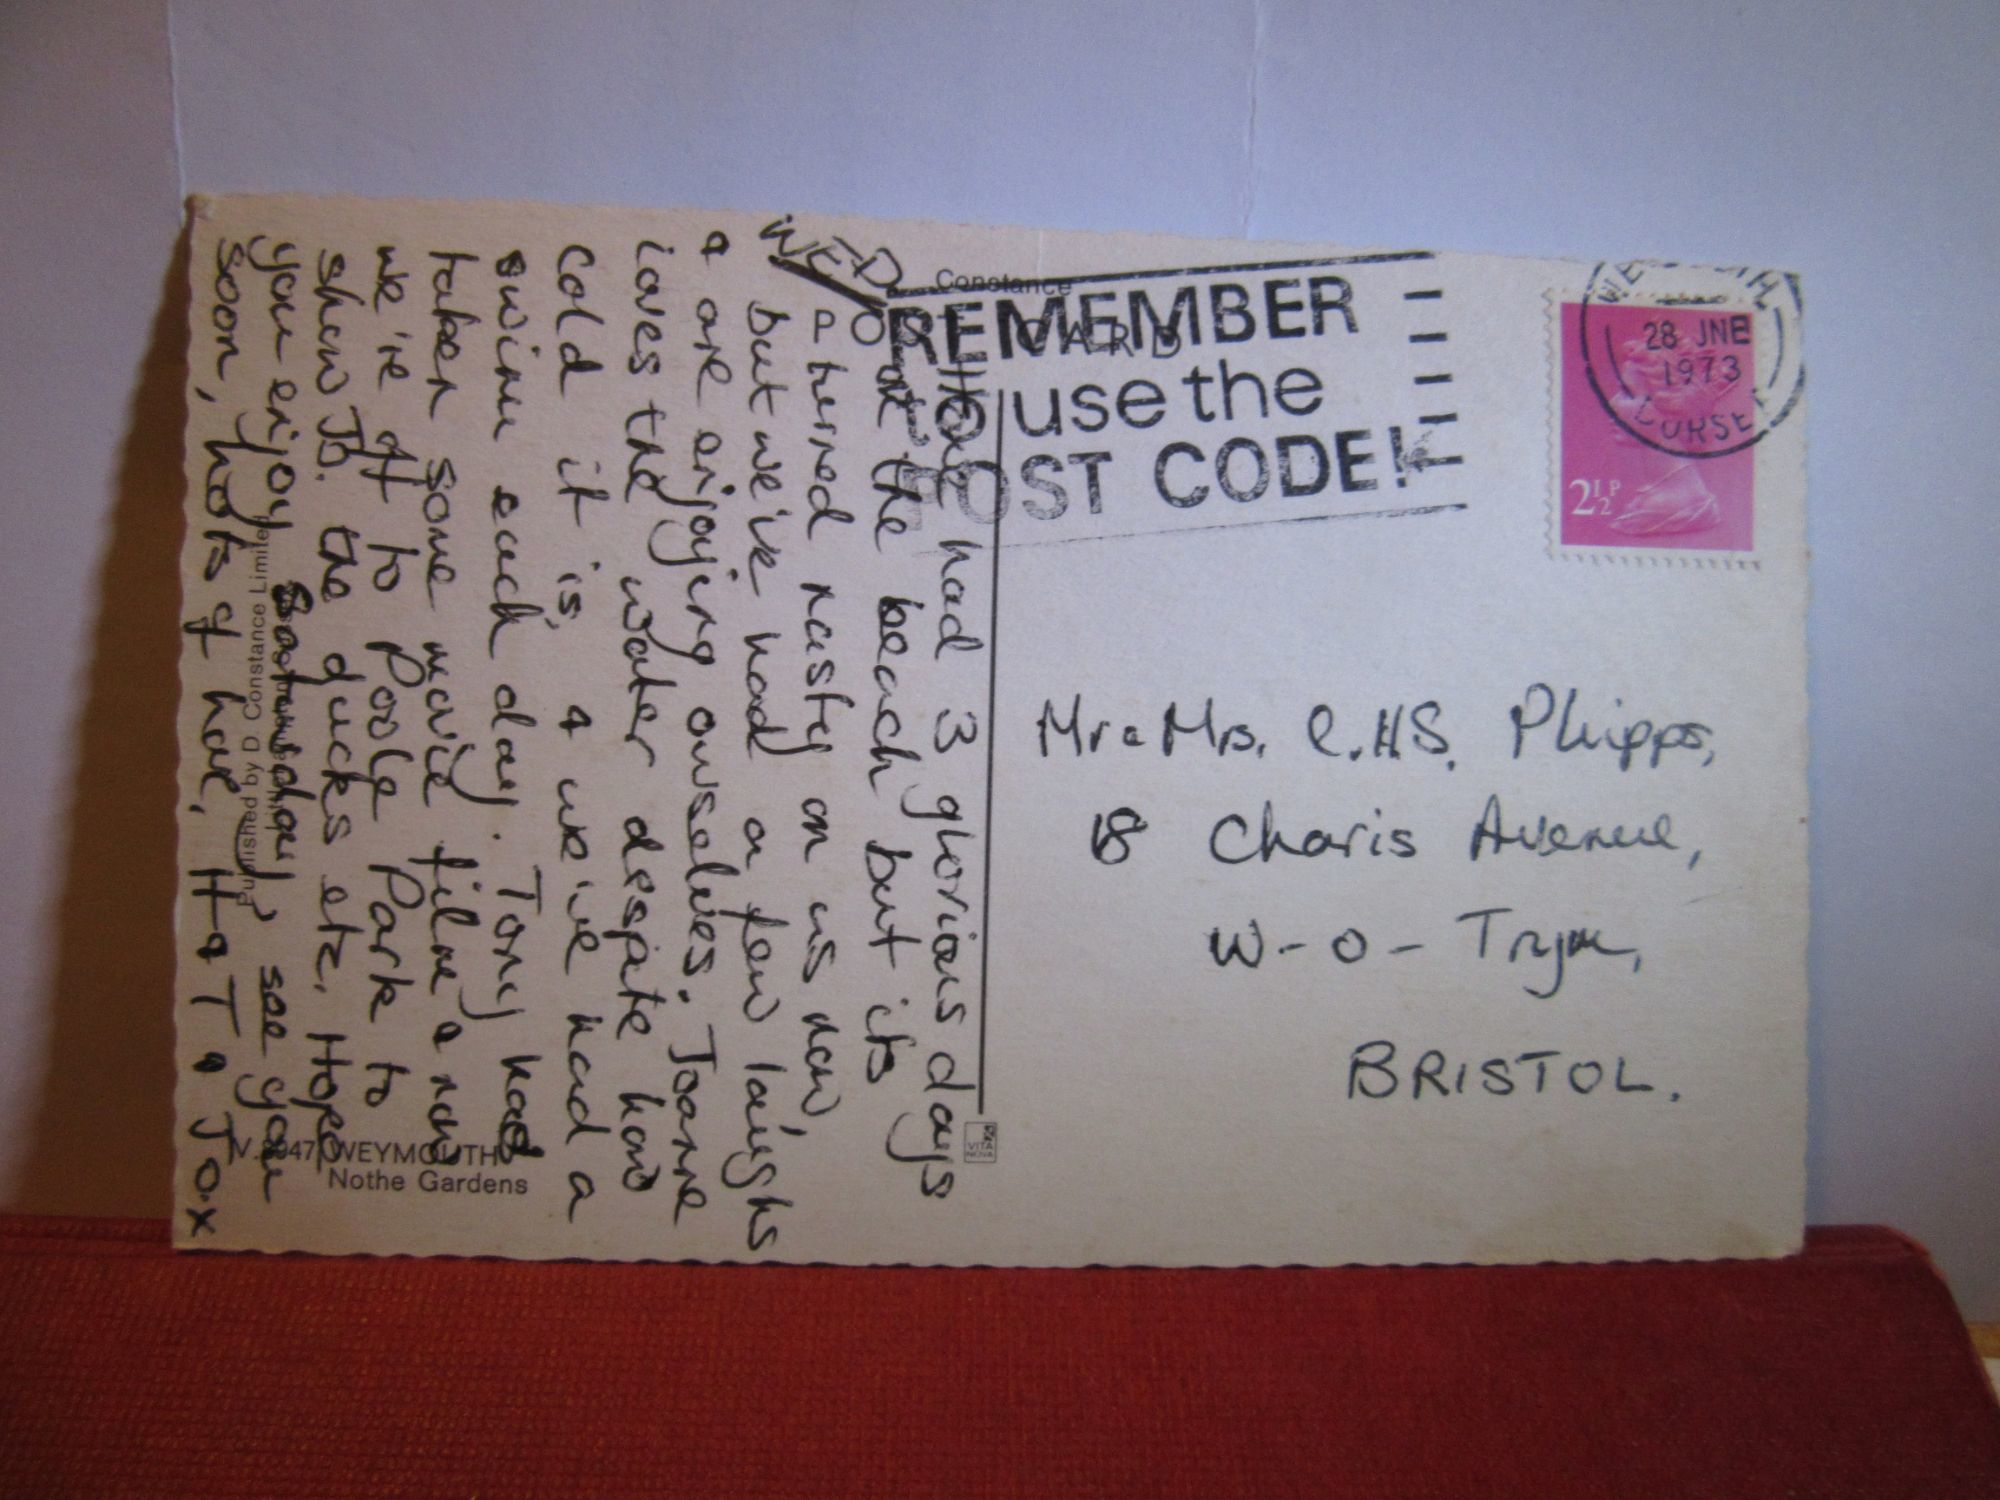 WED
Have had 3 glorious days
on the beach but its
turned nasty on us now,
but we've had a few laughs
& are enjoying ourselves. Joanne
loves the water despite how
cold it is, & we've had a
swim each day. Tony had
taken some movie film & now
we're off to Poole Park to
show Jo. the ducks etc, Hope
you enjoy Saturday, see you
soon, lots of love, H & T & Jo. x
Constance
POST CARD
REMEMBER
use the
POST CODE!
WEYMOUTH,
28 JNE
1973
DORSET
2½P
Mr & Mrs. C.H.S. Phipps,
18 Charis Avenue,
W-O-Trym,
BRISTOL.
VITA
NOVA
Published by D. Constance Limited
WEYMOUTH
Nothe Gardens